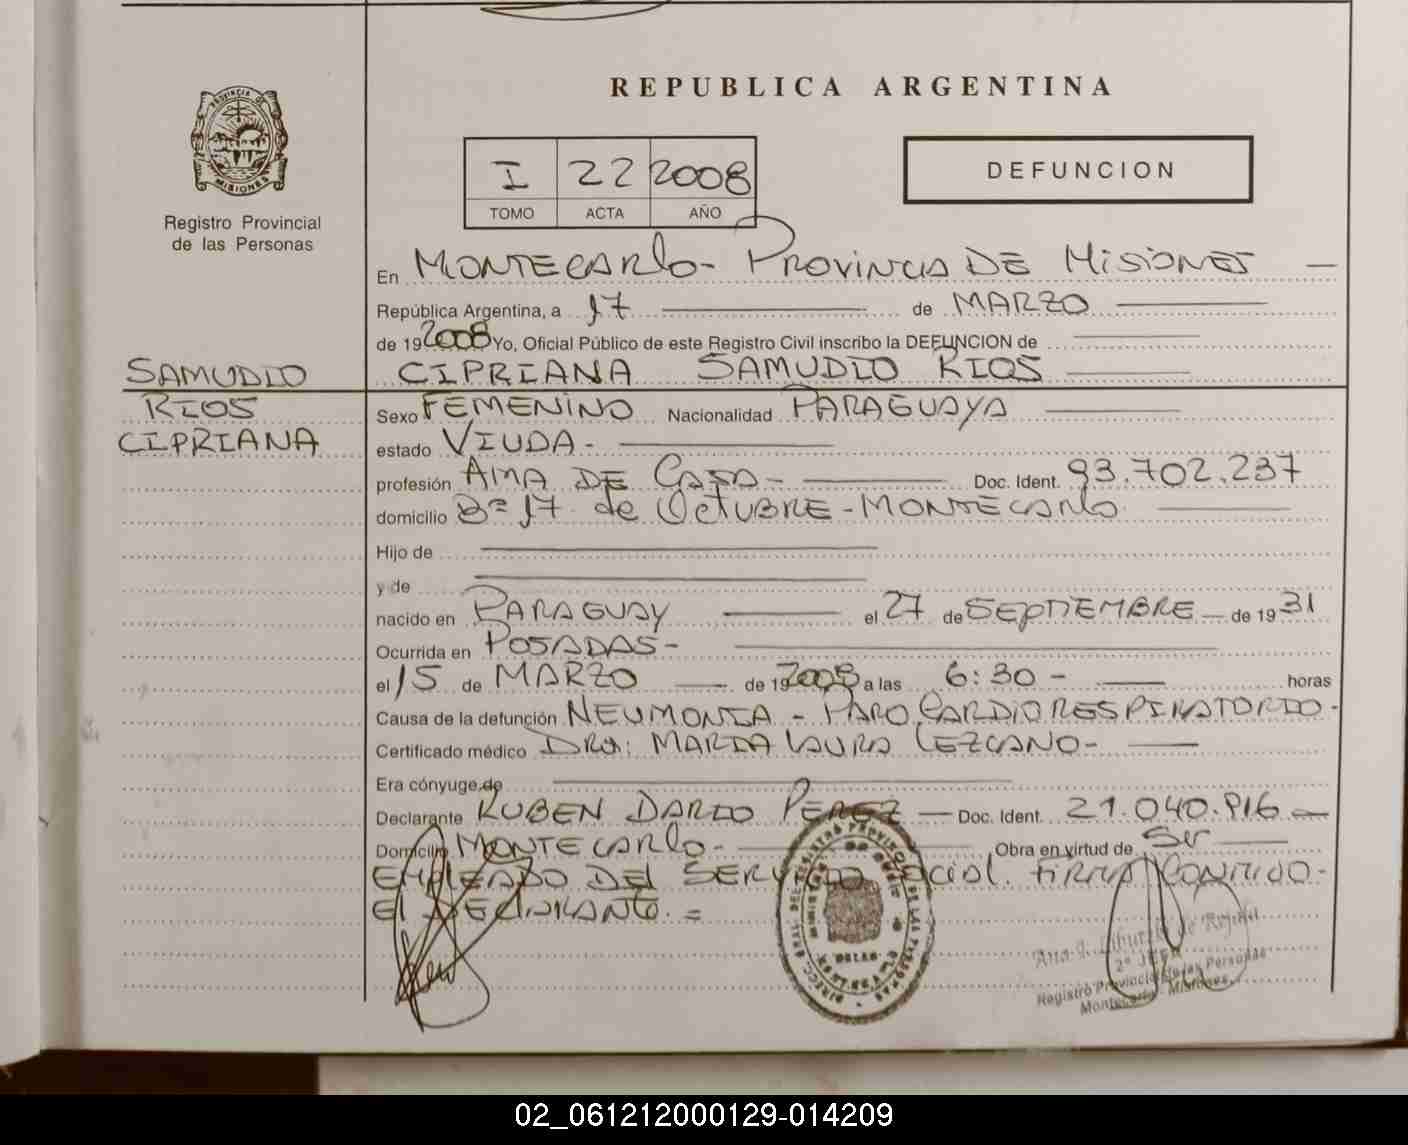 REPUBLICA ARGENTINA
PROVINCIA DE
MISIONES
Registro Provincial
de las Personas
I 22 2008
TOMO ACTA AÑO
DEFUNCION
En MONTECARLO - PROVINCIA DE MISIONES
República Argentina, a 17 de MARZO
de 19 2008 Yo, Oficial Público de este Registro Civil inscribo la DEFUNCION de
SAMUDIO
RIOS
CIPRIANA
CIPRIANA SAMUDIO RIOS
Sexo FEMENINO Nacionalidad PARAGUAYA
estado VIUDA -
profesión AMA DE CASA - Doc. Ident. 93.702.237
domicilio Bº 17 de OCTUBRE - MONTECARLO
Hijo de
y de
nacido en PARAGUAY el 27 de SEPTIEMBRE de 19 31
Ocurrida en POSADAS -
el 15 de MARZO de 19 2008 a las 6:30 - horas
Causa de la defunción NEUMONIA - PARO CARDIORESPIRATORIO -
Certificado médico DRA: MARIA LAURA LEZCANO -
Era cónyuge de
Declarante RUBEN DARIO PEREZ Doc. Ident. 21.040.916
Domicilio MONTECARLO - Obra en virtud de Ser
EMPLEADO DEL SERVICIO SOCIAL. FIRMA CONMIGO -
El DECLARANTE. =
2º JEFE
Registro Provincial de las Personas
Montecarlo - Misiones
02_061212000129-014209